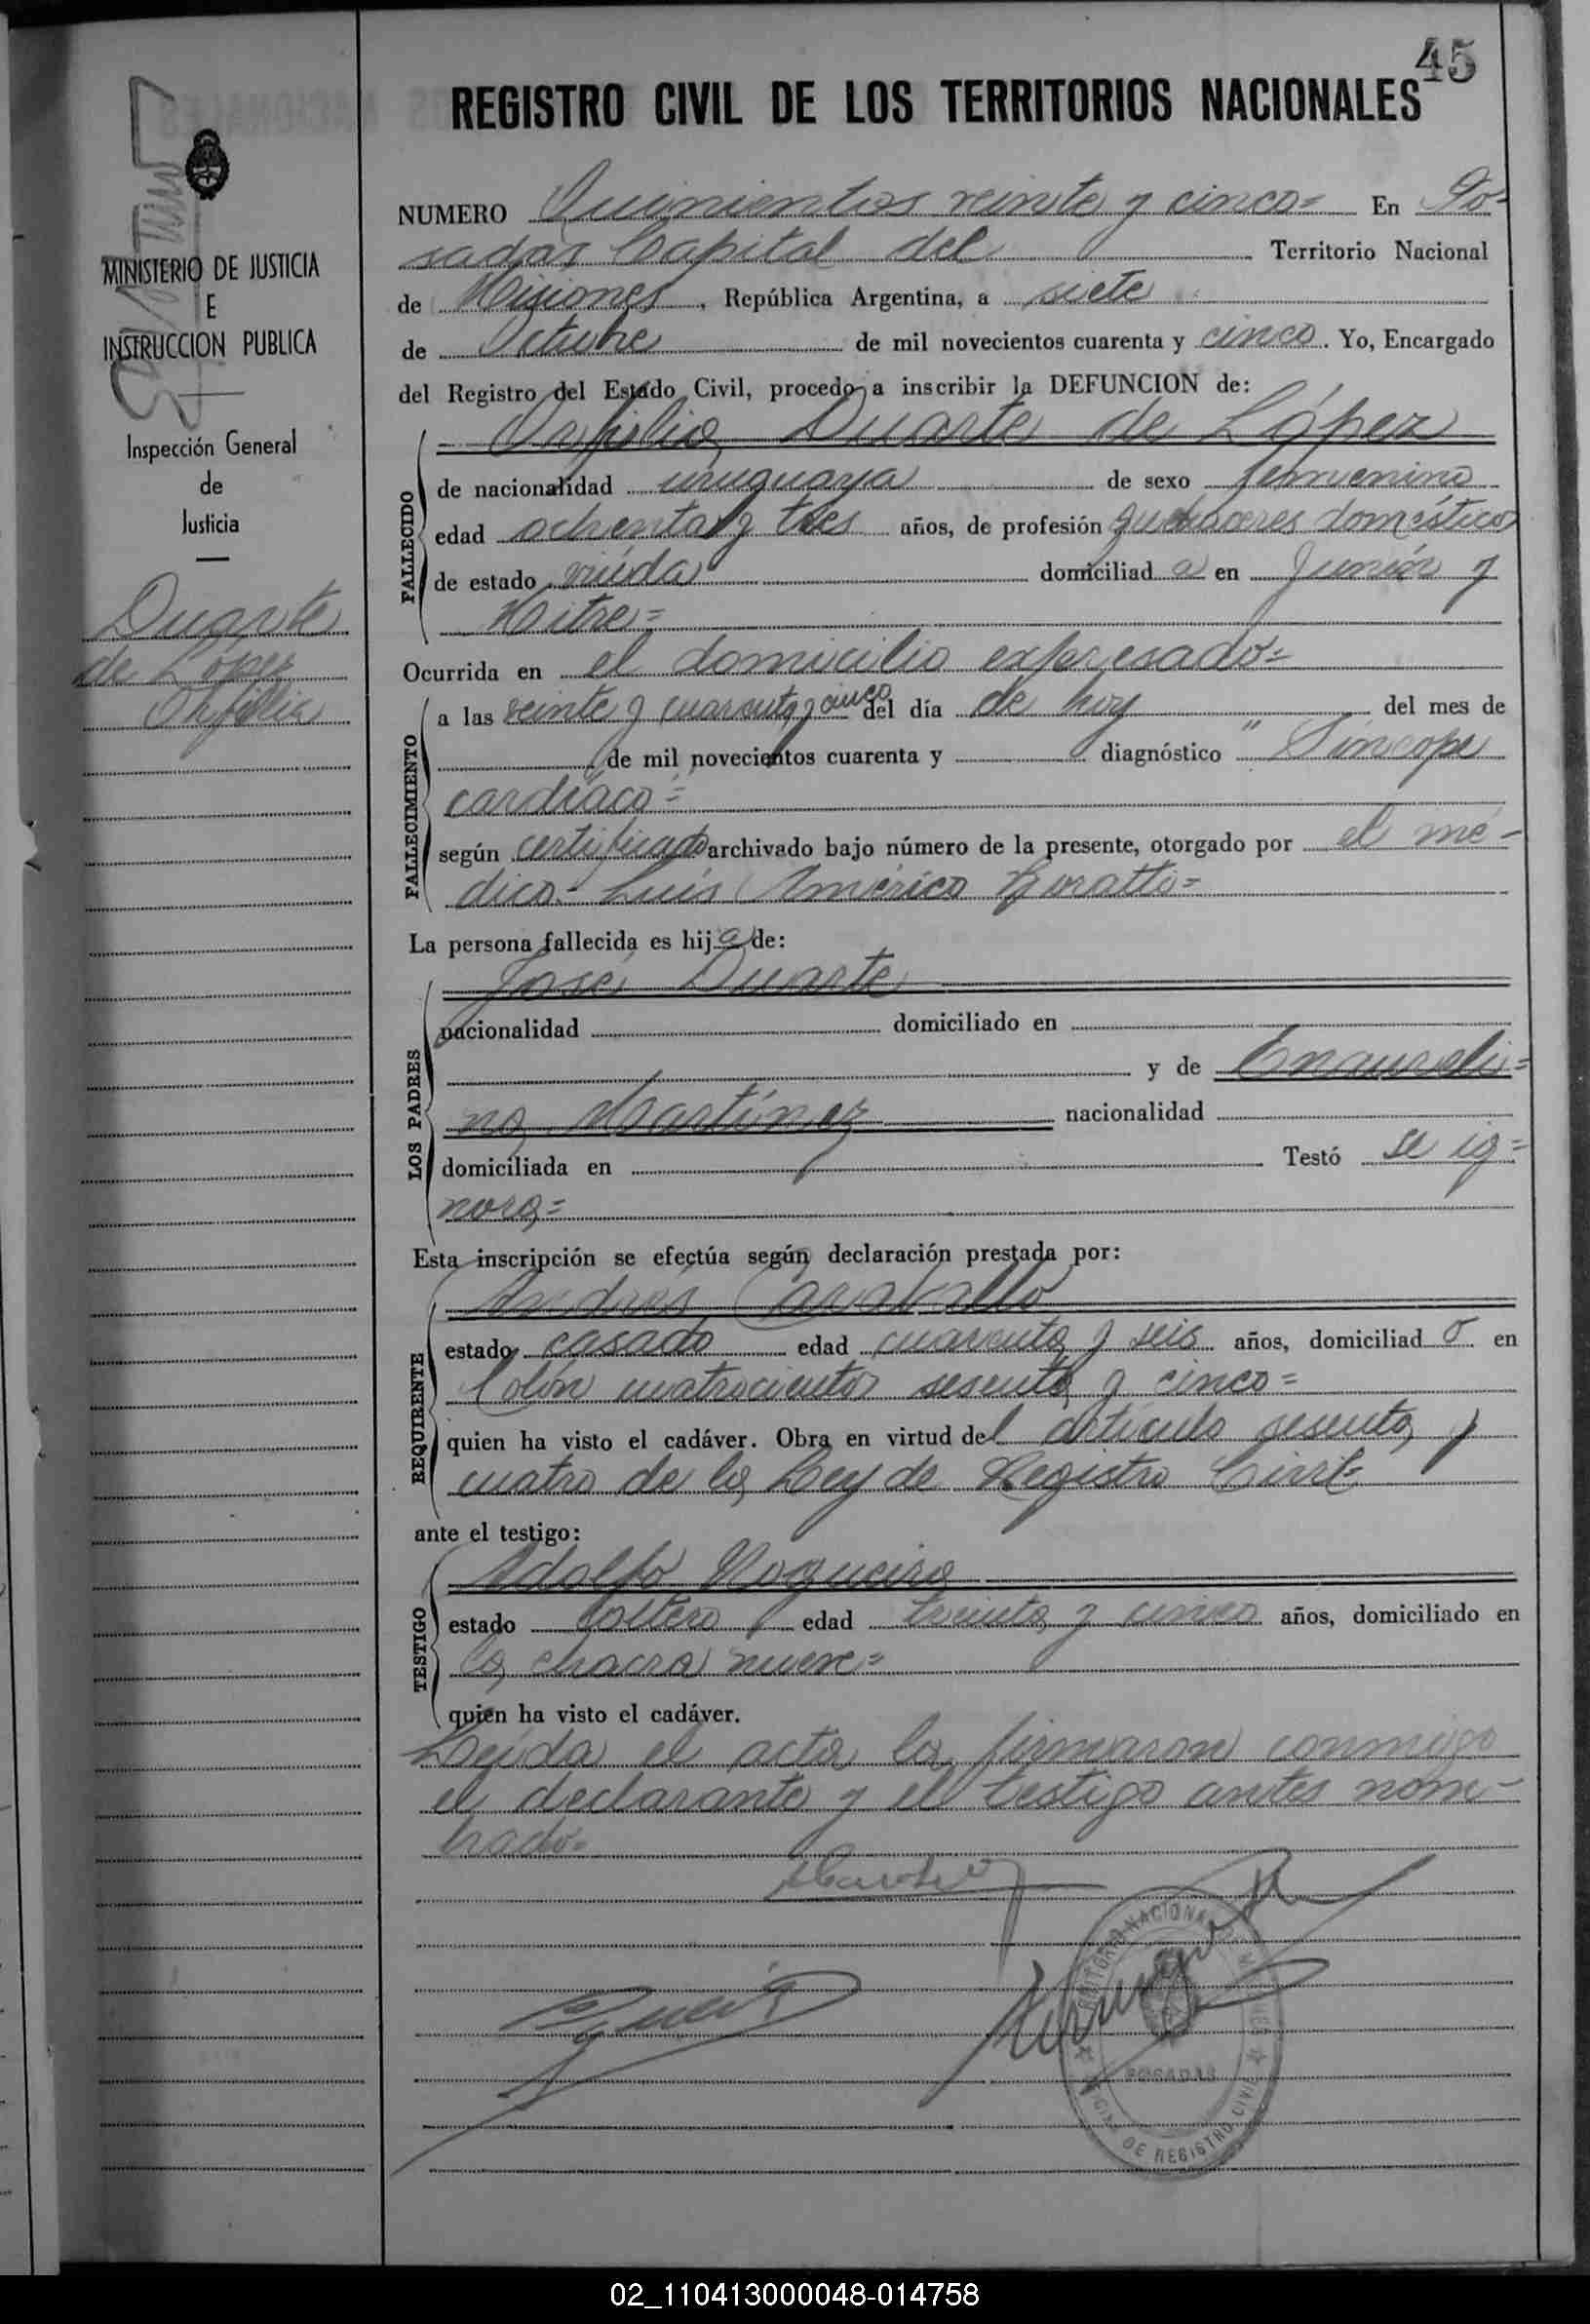 45
REGISTRO CIVIL DE LOS TERRITORIOS NACIONALES
MINISTERIO DE JUSTICIA
E
INSTRUCCION PUBLICA
Inspección General
de
Justicia
Duarte
de López
NUMERO Quinientos veinte y cinco= En Po-
sadas Capital del Territorio Nacional
de Misiones, República Argentina, a siete
de Octubre de mil novecientos cuarenta y cinco. Yo, Encargado
del Registro del Estado Civil, procedo a inscribir la DEFUNCION de:
Duarte de López
FALLECIDO
de nacionalidad uruguaya de sexo femenino
edad ochenta y tres años, de profesión quehaceres domésticos
de estado viuda domiciliad a en Junín y
Mitre=
Ocurrida en el domicilio expresado=
FALLECIMIENTO
a las veinte y cuarenta y cinco del día de hoy del mes de
de mil novecientos cuarenta y diagnóstico " Síncope
cardíaco="
según certificado archivado bajo número de la presente, otorgado por el mé-
dico- Luis Américo
La persona fallecida es hij a de:
LOS PADRES
José Duarte
nacionalidad domiciliado en
y de
Martínez nacionalidad
domiciliada en Testó se ig=
nora=
Esta inscripción se efectúa según declaración prestada por:
REQUIRENTE
Andrés Caraballo
estado casado edad cuarenta y seis años, domiciliad o en
Colón cuatrocientos sesenta y cinco=
quien ha visto el cadáver. Obra en virtud del artículo sesenta y
cuatro de la Ley de Registro Civil=
ante el testigo:
TESTIGO
Adolfo Nogueira
estado soltero edad treinta y cinco años, domiciliado en
la chacra nueve=
quien ha visto el cadáver.
Leída el acta la firmaron conmigo
el declarante y el testigo antes nom-
brado=
POSADAS
02_110413000048-014758